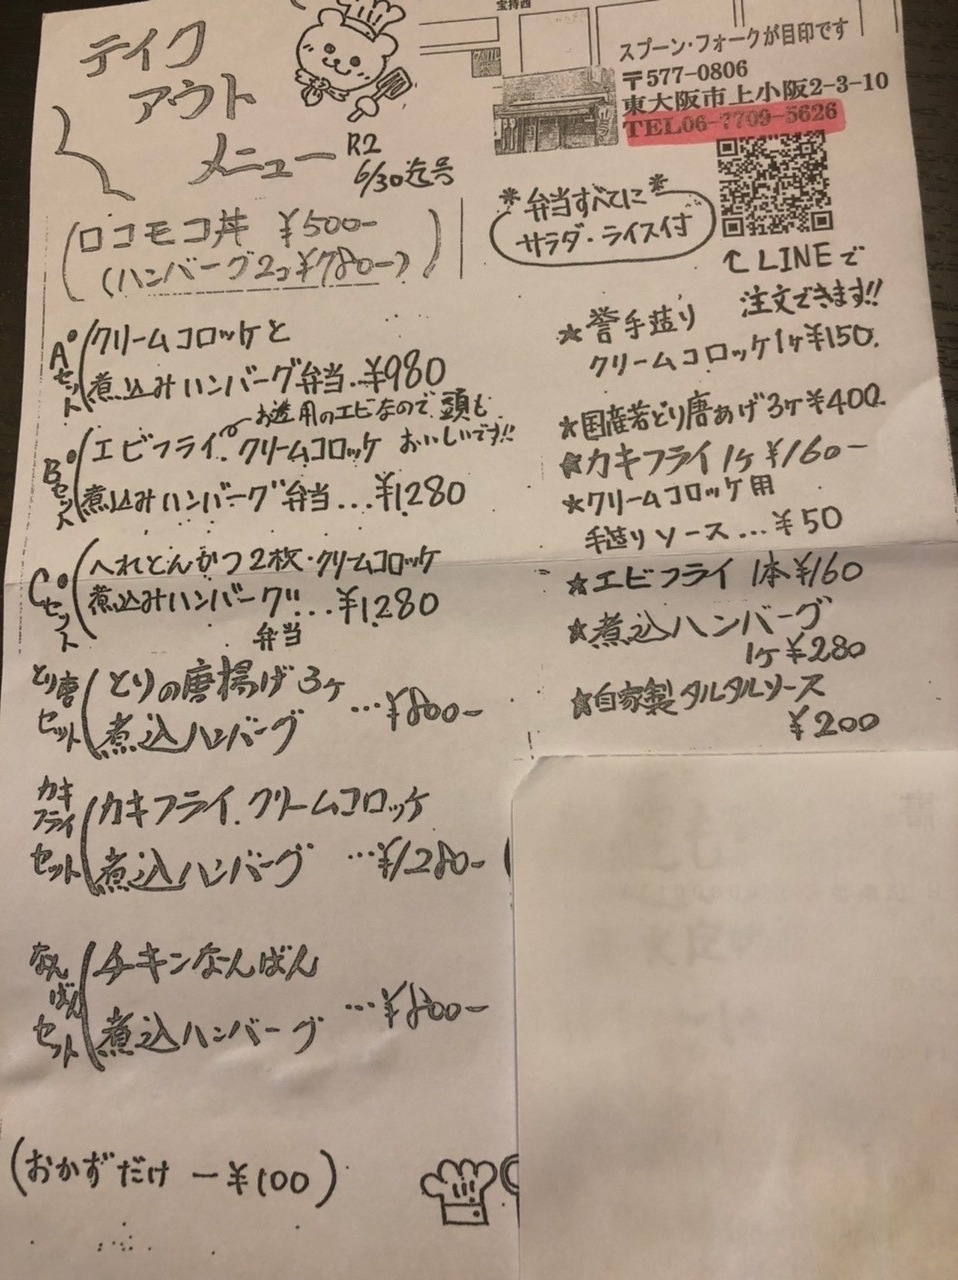 テイク
アウト
メニュー
R2
6/30迄号
宝持西
スプーン・フォークが目印です
〒577-0806
東大阪市上小阪2-3-10
TEL06-7709-5626
*弁当すべてに*
サラダ・ライス付
↑LINEで
注文できます!!
(ロコモコ丼 ¥500-
(ハンバーグ2コ¥780-))
Aセット
クリームコロッケと
煮込みハンバーグ弁当..¥980
お造用のエビなので頭も
おいしいです!!
Bセット
エビフライ.クリームコロッケ
煮込みハンバーグ弁当...¥1280
Cセット
へれとんかつ2枚・クリームコロッケ
煮込みハンバーグ...¥1280
弁当
とり唐セット
とりの唐揚げ3ヶ
煮込ハンバーグ ...¥800-
カキフライセット
カキフライ.クリームコロッケ
煮込ハンバーグ ...¥1280-
なんばんセット
チキンなんばん
煮込ハンバーグ ...¥800-
(おかずだけ -¥100)
★誉手造り
クリームコロッケ1ヶ¥150.
★国産若どり唐あげ3ヶ¥400
★カキフライ1ヶ¥160-
★クリームコロッケ用
手造りソース...¥50
★エビフライ 1本¥160
★煮込ハンバーグ
1ヶ¥280
★自家製タルタルソース
¥200